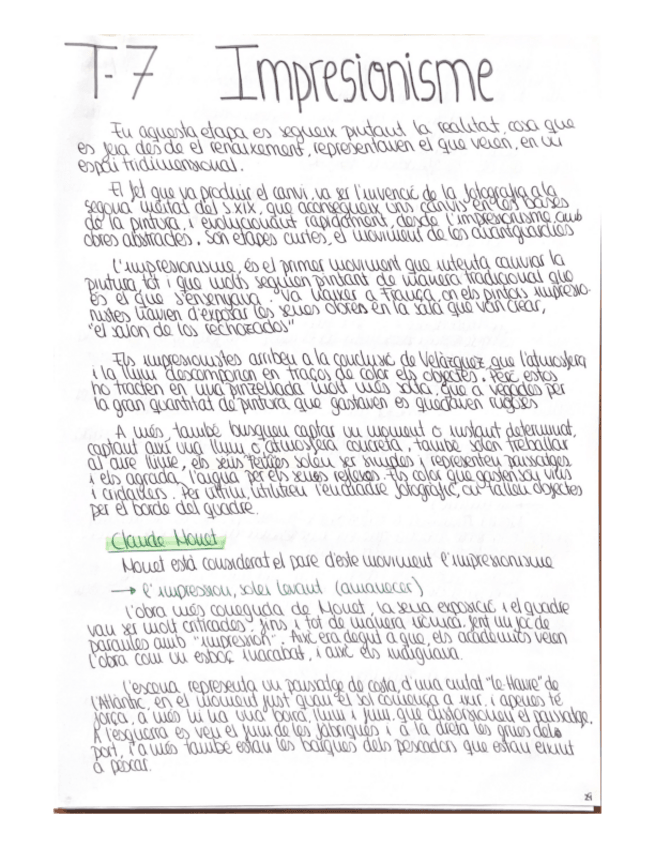 T-7 Impresionisme
En aquesta etapa es segueix pintant la realitat, cosa que
es feia des de el renaixement, representaven el que veien, en un
espai tridimensional.
El fet que va produir el canvi, va ser l'invenció de la fotografia a la
segona meitat del S XIX, que aconsegueix uns canvis en les bases
de la pintura, i evolucionant rapidament, desde l'impresionisme amb
obres abstractes. Són etapes curtes, el moviment de les avantguardies
L'impresionisme, és el primer moviment que intenta canviar la
pintura, tot i que molts seguien pintant de manera tradicional que
és el que s'ensenyava. Va naixer a França, on els pintors impresio-
nistes havien d'exposar les seues obres en la sala que van crear,
"el salon de los rechazados"
Els impresionistes arriben a la conclusió de Velázquez que l'atmosfera
i la llum descomponen en traços de color els objectes. Però estos
ho tracten en una pinzellada molt més solta, que a vegades per
la gran quantitat de pintura que gastaven es quedaven rugoses
A més, també busquen captar un moment o instant determinat,
captant així una llum o atmosfera concreta, també solen treballar
al aire lliure, els seus temes solen ser simples i representen paisatges
i els agrada l'aigua per els seus reflexos. Els color que gasten son vius
i cridaners. Per últim, utilitzen l'enquadre fotogràfic, on tallen objectes
per el borde del quadre.
Claude Monet
Monet està considerat el pare d'este moviment l'impresionisme
→ l'impression, soleil levant (amanecer)
L'obra més coneguda de Monet, la seua exposició i el quadre
van ser molt criticades. fins i tot de manera irònica. fent un joc de
paraules amb "impresión". Això era degut a que, els acadèmics veien
l'obra com un esboç inacabat, i això els indignava.
L'escena representa un paisatge de costa, d'una ciutat "le Havre" de
l'Atlàntic, en el moment just quan el sol comença a eixir, i apenes té
força, a més hi ha una boira, llum i fum, que distorsionen el paisatge.
A l'esquerra es veu el fum de les fàbriques i a la dreta les grues dels
port, i a més també estan les barques dels pescadors que estan eixint
a pescar.